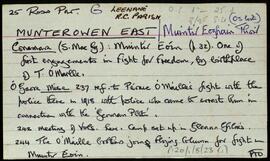 25 Ross Par. G LEENANE
R.C. PARISH
MUNTEROWEN EAST Muintir Eoghain Thoir
Connemara (S. Mac G): Muintir Eoin (p. 32). One of
first engagements in fight for freedom, by birthplace
of T. O'Malley.
237 ref. to Pádraic O'Máille's fight with the
police there in 1918 with police who came to arrest him in
connection with the "German Plot".
242 meeting of Vols. here. Camp set up in Glenn Eidhir.
244 The O'Máille brothers join flying column for fight in
Muintir Eoin.
PTO